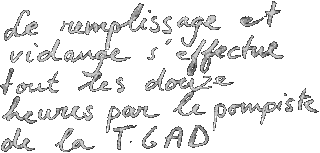 Le remplissage et
vidange s'effectue
tout les douze
heures par le pompiste
de la T.GAD